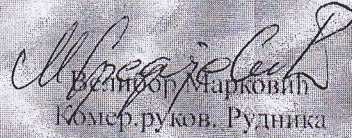 Велибор Марковић
Комер.руков. Рудника